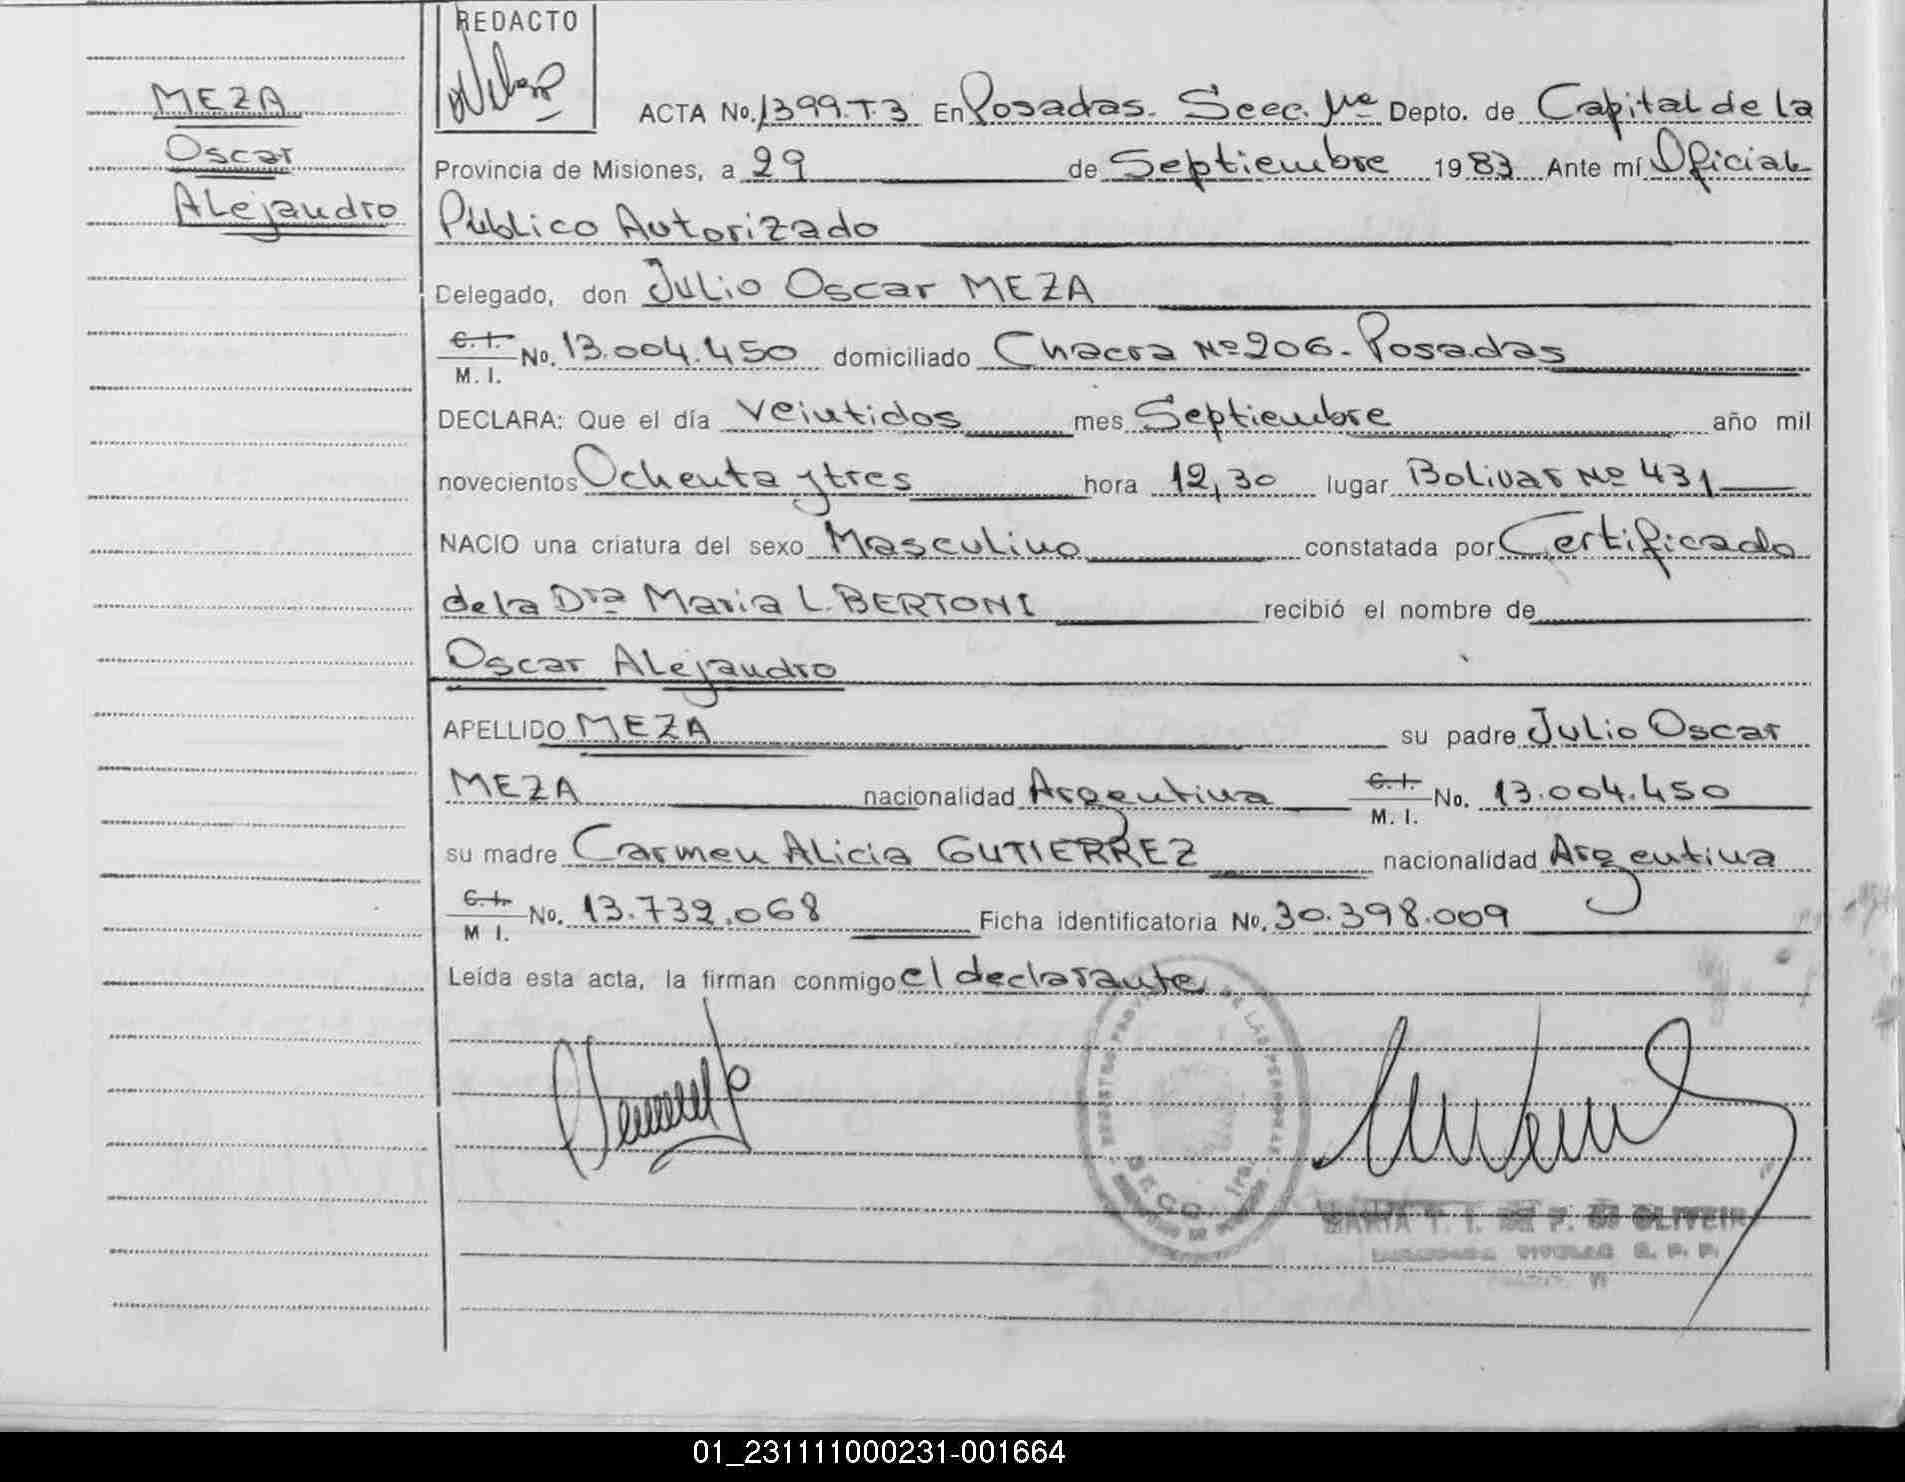 REDACTO
MEZA
Oscar
Alejandro
ACTA No. 1399.T.3 En Posadas. Secc. 1ra Depto. de Capital de la
Provincia de Misiones, a 29 de Septiembre 1983 Ante mí Oficial
Público Autorizado
Delegado, don Julio Oscar MEZA
C.I. / M. I. No. 13.004.450 domiciliado Chacra Nº 206 - Posadas
DECLARA: Que el día Veintidos mes Septiembre año mil
novecientos Ochenta y tres hora 12,30 lugar Bolivar Nº 431
NACIO una criatura del sexo Masculino constatada por Certificado
de la Dra Maria L. BERTONI recibió el nombre de
Oscar Alejandro
APELLIDO MEZA su padre Julio Oscar
MEZA nacionalidad Argentina C.I. / M. I. No. 13.004.450
su madre Carmen Alicia GUTIERREZ nacionalidad Argentina
C.I. / M I. No. 13.732.068 Ficha identificatoria No. 30.398.009
Leída esta acta, la firman conmigo el declarante
DE LAS PERSONAS
SECC. 1ra
MARIA T. I. DE F. DE OLIVEIR
01_231111000231-001664